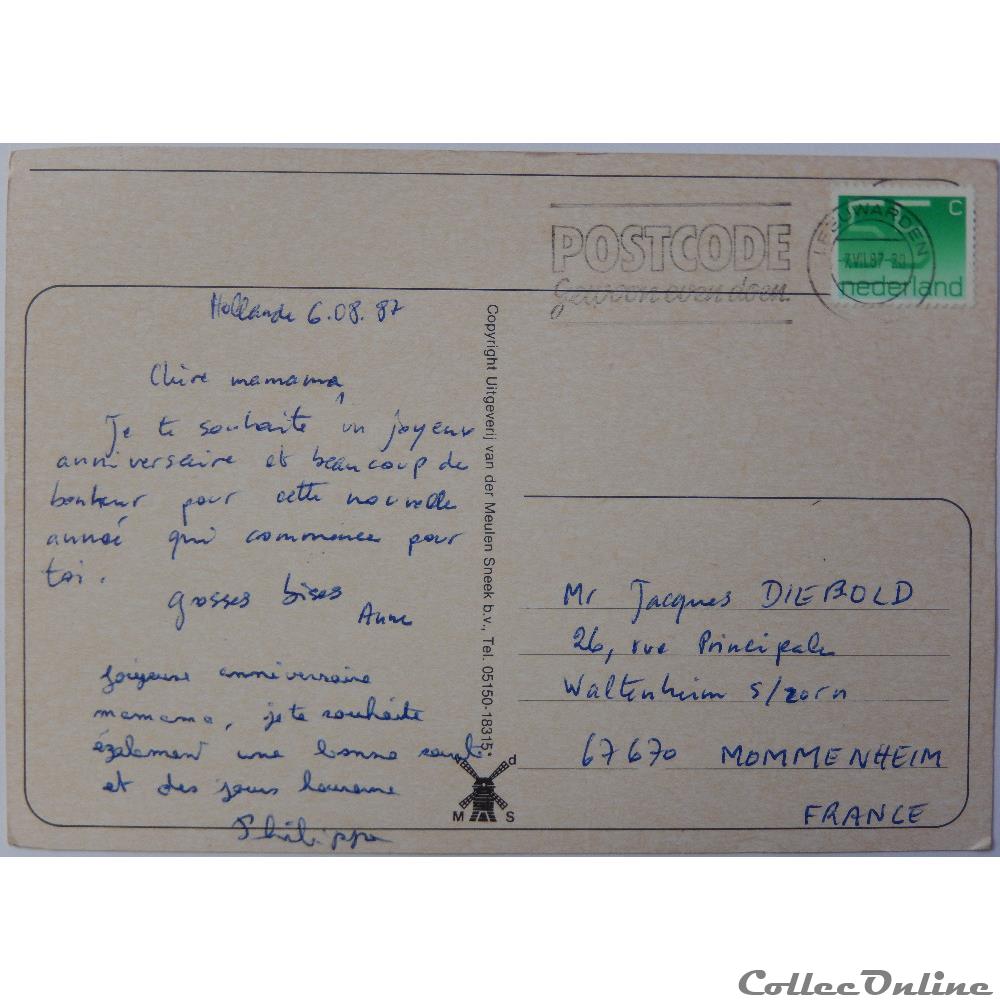 POSTCODE
gewoon even doen.
LEEUWARDEN
C
nederland
Hollande 6.08.87
Chère mamama,
Je te souhaite un joyeux
anniversaire et beaucoup de
bonheur pour cette nouvelle
année qui commence pour
toi.
grosses bises
Anne
joyeuse anniversaire
mamama, je te souhaite
également une bonne santé
et des jours heureux
Philippe
Copyright Uitgeverij van der Meulen Sneek b.v., Tel. 05150-18315*
v d
M S
Mr Jacques DIEBOLD
26, rue Principale
Waltenheim s/zorn
67670 MOMMENHEIM
FRANCE
CollecOnline